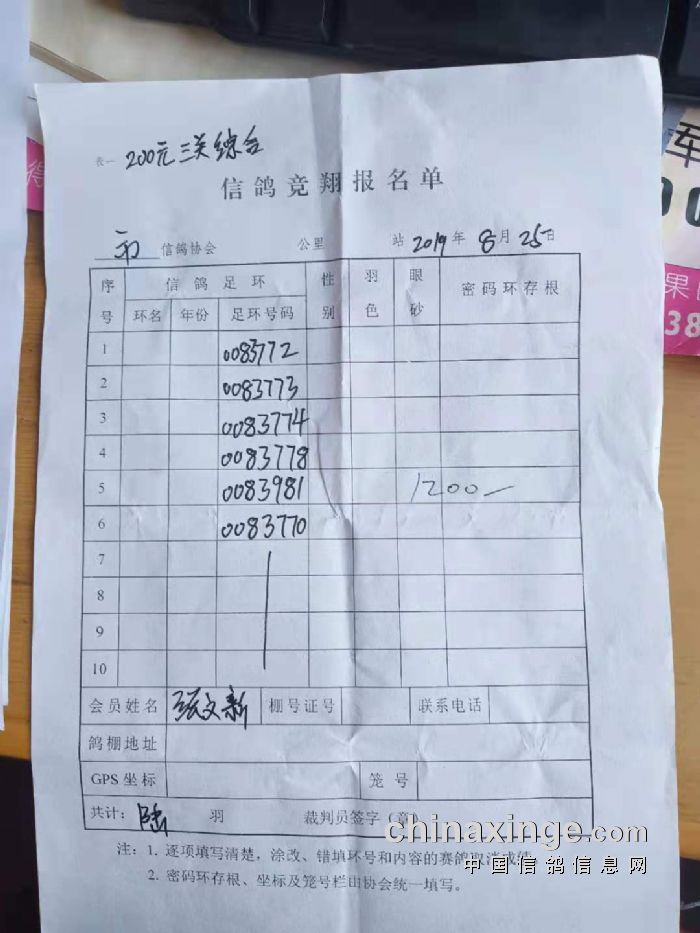 表一 200元三关综合
信鸽竞翔报名单
市 信鸽协会 公里 站 2019年 8月 25日
序号 信鸽足环 性别 羽色 眼砂 密码环存根
环名 年份 足环号码
1 0083772
2 0083773
3 0083774
4 0083778
5 0083981 1200—
6 0083770
7
8
9
10
会员姓名 张文新 棚号证号 联系电话
鸽棚地址
GPS坐标 笼号
共计: 陆 羽 裁判员签字(章)
注: 1. 逐项填写清楚，涂改、错填环号和内容的赛鸽取消成绩。
2. 密码环存根、坐标及笼号栏由协会统一填写。
chinaxinge.com
中国信鸽信息网
军
果
38
得